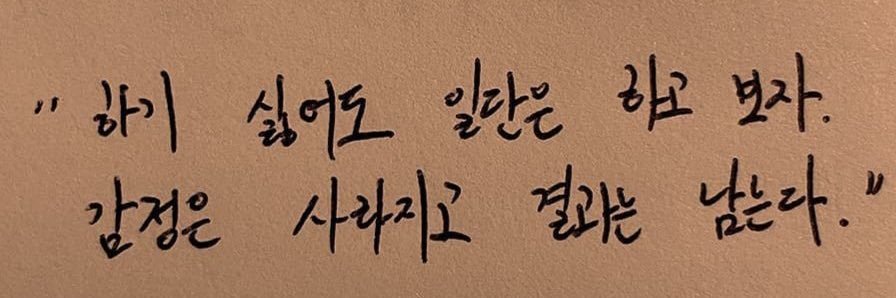 "하기 싫어도 일단은 하고 보자.
감정은 사라지고 결과는 남는다."